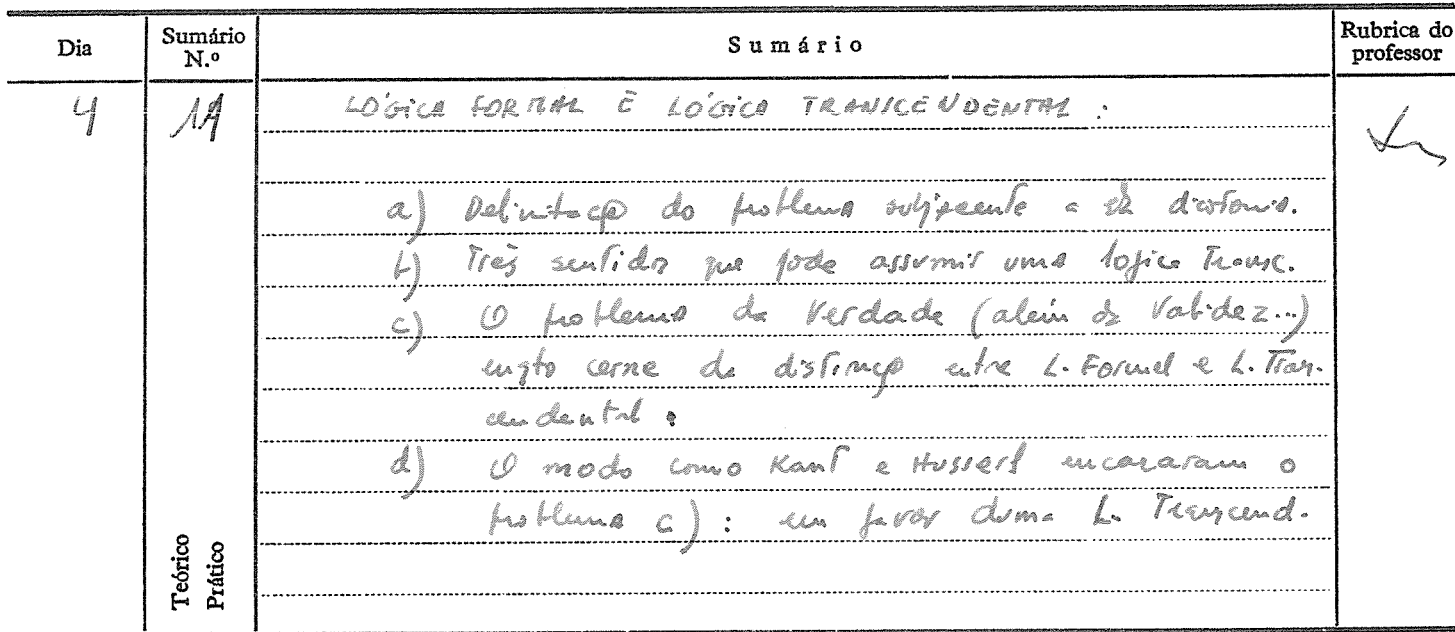 Dia
Sumário N.º
Sumário
Rubrica do professor
4
11
LÓGICA FORMAL E LÓGICA TRANSCENDENTAL:
a) Delimitação do problema subjacente a dicotomia.
b) Três sentidos que pode assumir uma logica Transc.
c) O problema da Verdade (além da Validez...)
enqto cerne da distinção entre L. Formal e L. Trans-
cendental.
d) O modo como Kant e Husserl encararam o
problema c): em favor duma L. Transcend.
Teórico
Prático